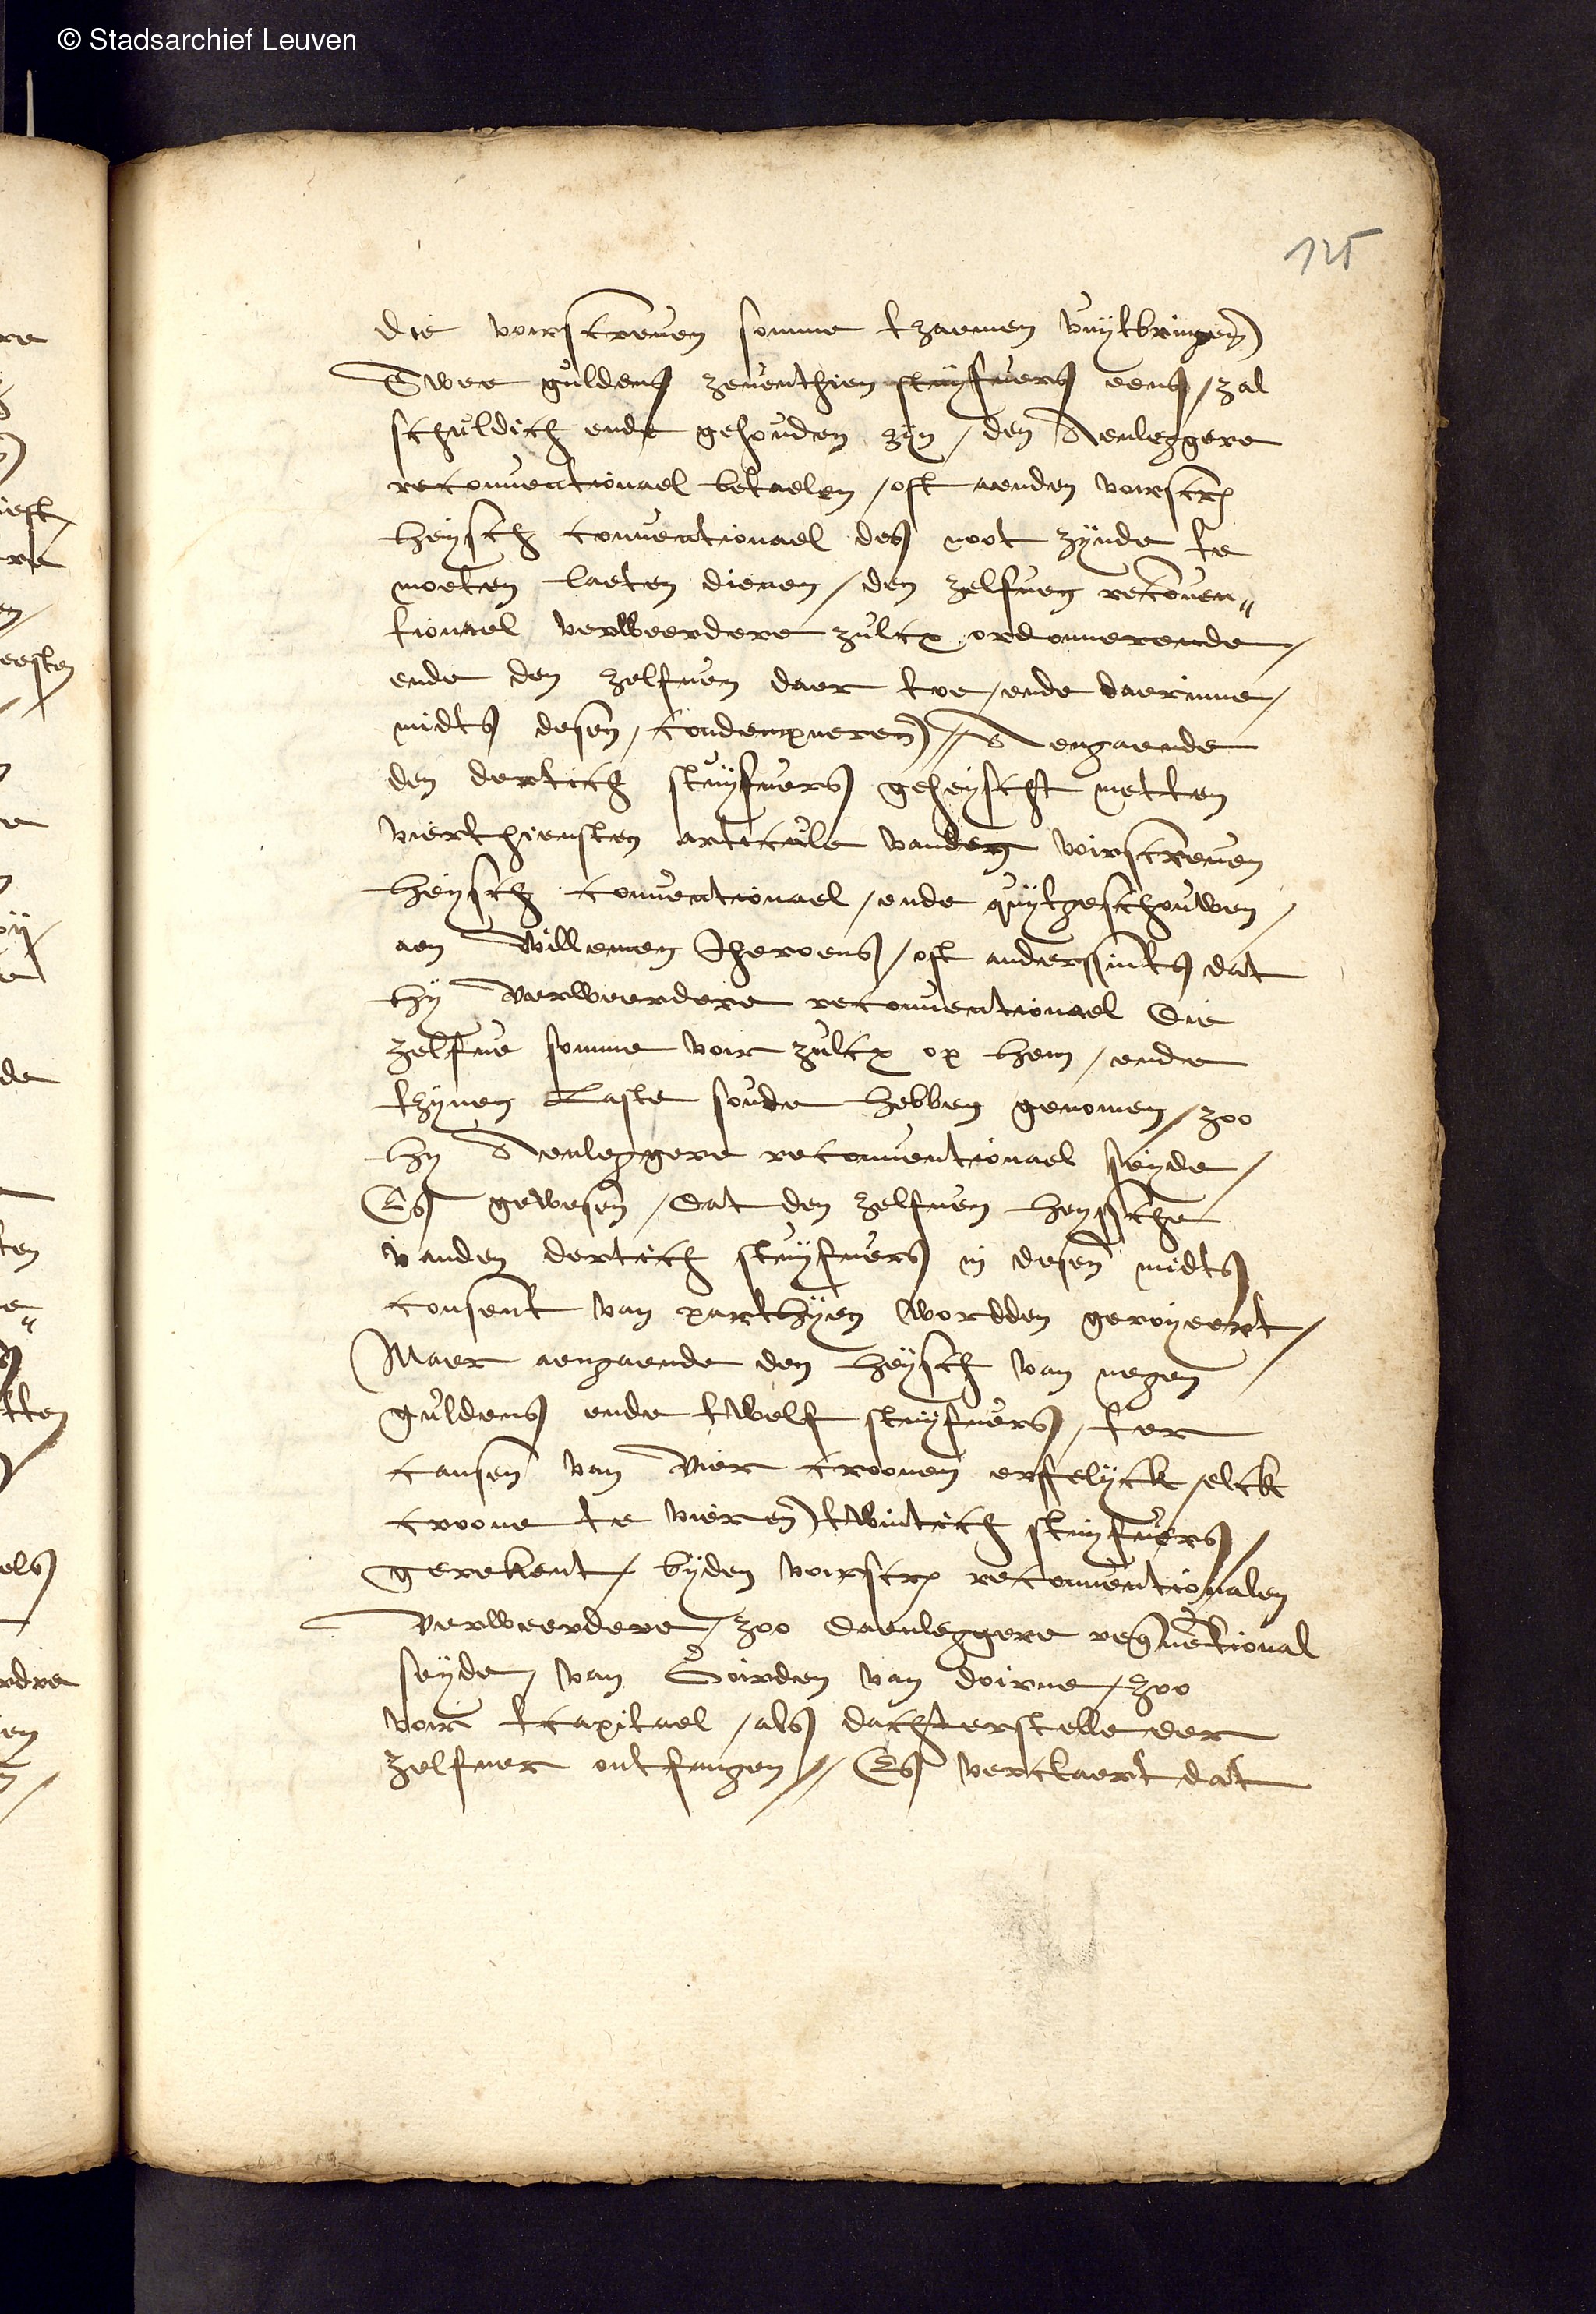 © Stadsarchief Leuven
125
die voirscreven somme tzaemen vuytbringen
Twee guldens zeventhien stuyfvers eens / zal
schuldich ende gehouden zyn / den Aenleggere
reconventionael betaelen / oft aenden voirscr
heysch conventionael des noot zynde te
moeten laeten dienen / den zelfven reconven"
tionael verweerdere zulcx ordonnerende /
ende den zelfven daer toe / ende daerinne /
midts desen / condempneren // Aengaende
den dertich stuyfvers geheyscht metten
vierthiensten articule vanden voirscreven
heysch conventionael / ende quytgeschouwen /
aen Willemen Jheroens / oft anderssints dat
hy verweerdere reconventionael die
zelfve somme voir zulcx op hem / ende
tzynen Laste soude hebben genomen / zoo
hy Aenleggere reconventionael seyde /
Es gewesen / dat den zelfven heyssche
vanden dertich stuyfvers in desen midts
consent van parthyen wordden geroyeert /
Maer aengaende den heysch van negen
guldens ende twelf stuyfvers / ter
causen van vier croonen erffelyck / elck
croone te vierentwintich stuyfvers /
gerekent / byden voirscr reconventionalen
verweerdere / zoo daenleggere reconventional
seyde / van Goirden van doirne / zoo
voir tcapitael / als dachterstelle der
zelfver ontfangen // Es verclaert dat